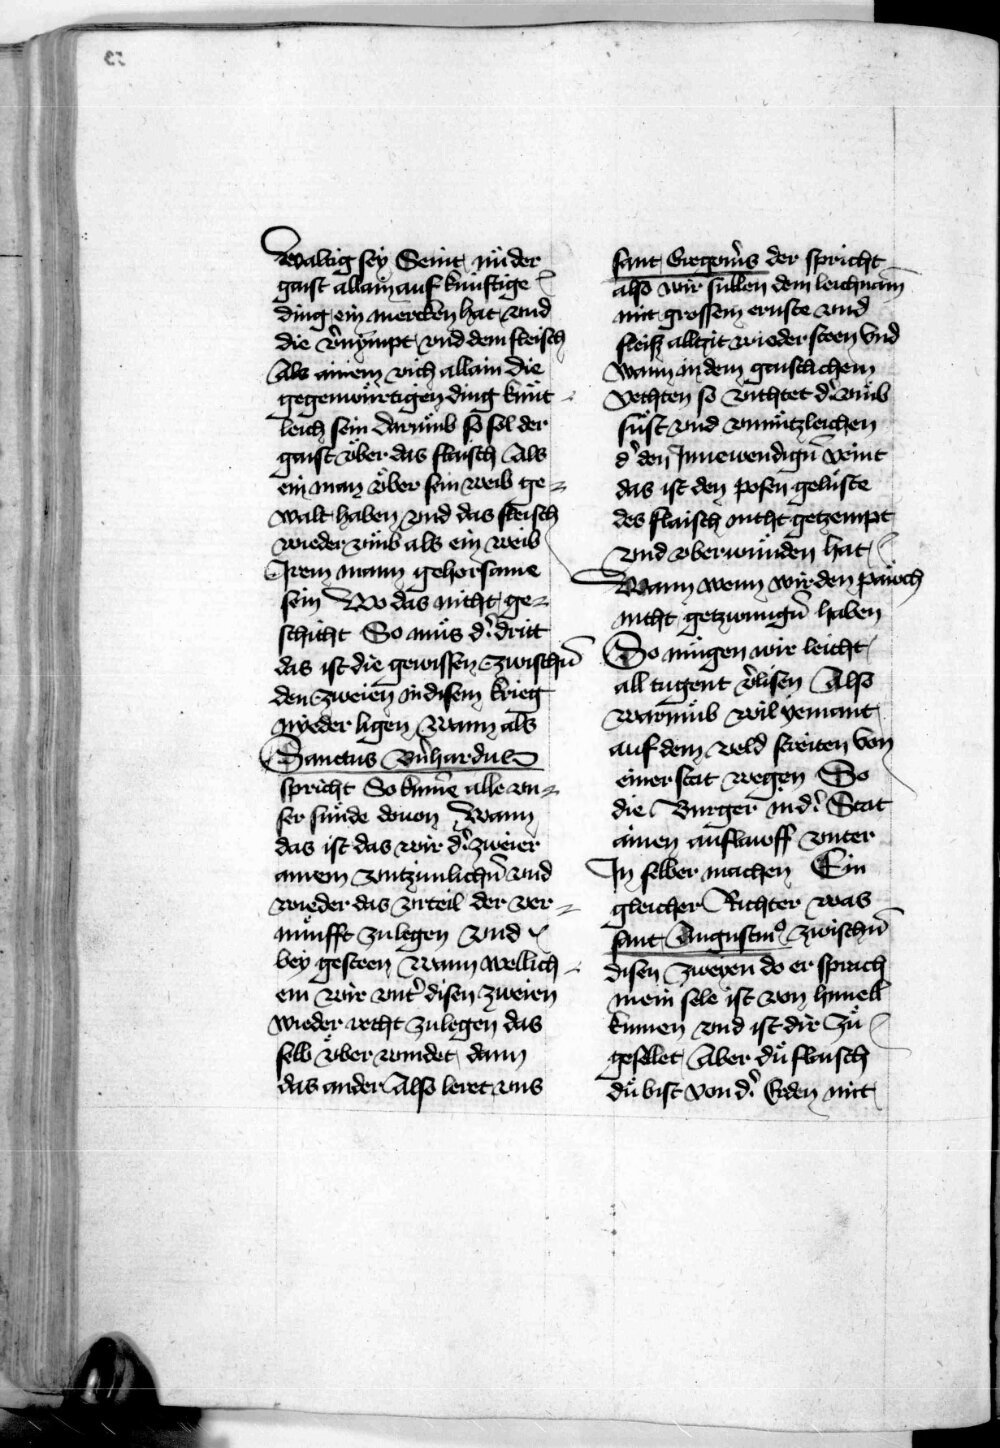 waltig sey Seint nu der
gaist allain auf kunftige
ding ein mercken hat vnd
die v̾nympt vnd dem fleisch
Als ainem vich allain die
gegenwürtigen ding kunt
leich sein darumb so sol der
gaist vber das flaisch Als
ein man vber sein weib ge⸗
walt haben vnd das fleisch
wieder vmb als ein weib
Irem mann gehorsame
sein Wo das nicht ge⸗
schicht So mus d̾ dritt
das ist die gewissen zwischn̄
den zweien in disem krieg
nyder ligen Wann als
Sanctus Bn̄hardus
spricht So kume alle vn⸗
ser sunde douon Wann
das ist das wir d̾ zweier
ainem vntzimlichn̄ vnd
wieder das vrteil der ver⸗
nunfft zu legen Vnd
bey gesteen Wann wellich
em wir vnt̾ disen zweien
wieder recht zu legen das
selb vber windet dann
das ander Also leret vns
sant Gregori̾s der spricht
also wir sullen dem leichnam
mit grossem ernste vnd
fleiß alltzit wieder steen Vnd
Wann in dem gaistlichem
Vechten so vichtet d̾ vmb
sust vnd vnnutzleichen
d̾ den Innewendign̄ veint
das ist den posen geluste
des flaisch nicht getzempt
vnd vberwunden hat
Wann wenn wir den pauch
nicht getzwungn̄ haben
So mugen wir leicht
all tugent v̾lisen Also
warumb wil yemant
auf dem veld streiten Von
einer stat wegen So
die Burger in d̾ Stat
ainen auflauff vnter
In selber machen Ein
gleicher Richter was
sant Augustin⁹ zwischn̄
disen zweyen do er sprach
mein sele ist von himell
kumen vnd ist dir zu
gesellet Aber du flaisch
du bist von d̾ Erden mit